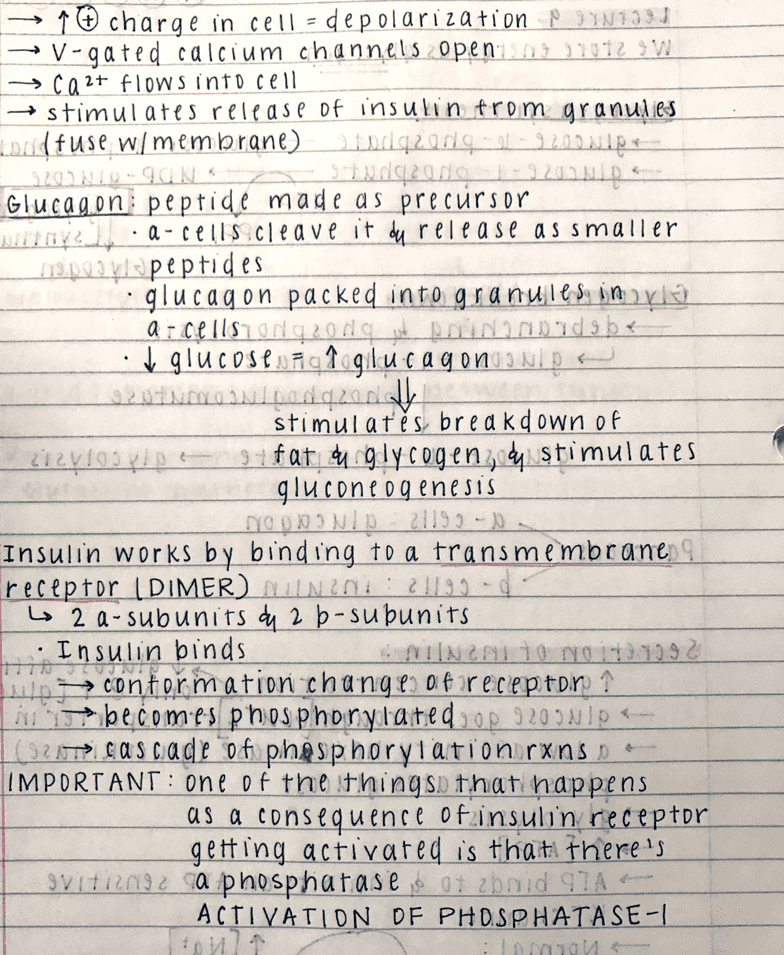 → ↑ ⊕ charge in cell = depolarization
→ V-gated calcium channels open
→ Ca²⁺ flows into cell
→ stimulates release of insulin from granules
(fuse w/membrane)
Glucagon: peptide made as precursor
· a-cells cleave it & release as smaller
peptides
· glucagon packed into granules in
a-cells
· ↓ glucose = ↑ glucagon
⇓
stimulates breakdown of
fat & glycogen, & stimulates
gluconeogenesis
Insulin works by binding to a transmembrane
receptor (DIMER)
↳ 2 a-subunits & 2 b-subunits
· Insulin binds
→ conformation change of receptor
→ becomes phosphorylated
→ cascade of phosphorylation rxns
IMPORTANT: one of the things that happens
as a consequence of insulin receptor
getting activated is that there's
a phosphatase
ACTIVATION OF PHOSPHATASE-1